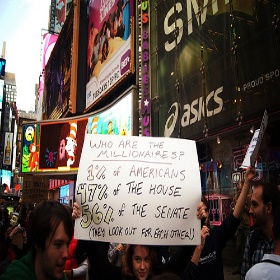 SM
asics
WHO ARE THE
MILLIONAIRES?
1% of AMERICANS
47% of THE HOUSE
56% of THE SENATE
(THEY LOOK OUT FOR EACH OTHER!)